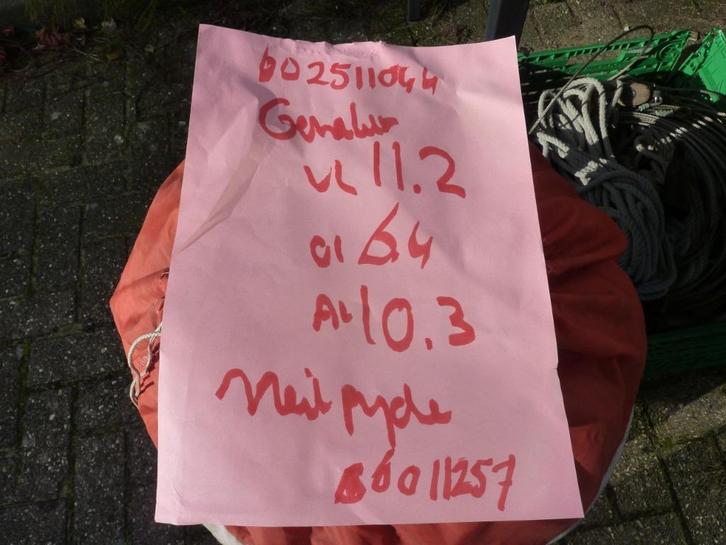 602511044
Genalur
VL 11.2
OL 6.4
AL 10.3
Neil pyde
6011257